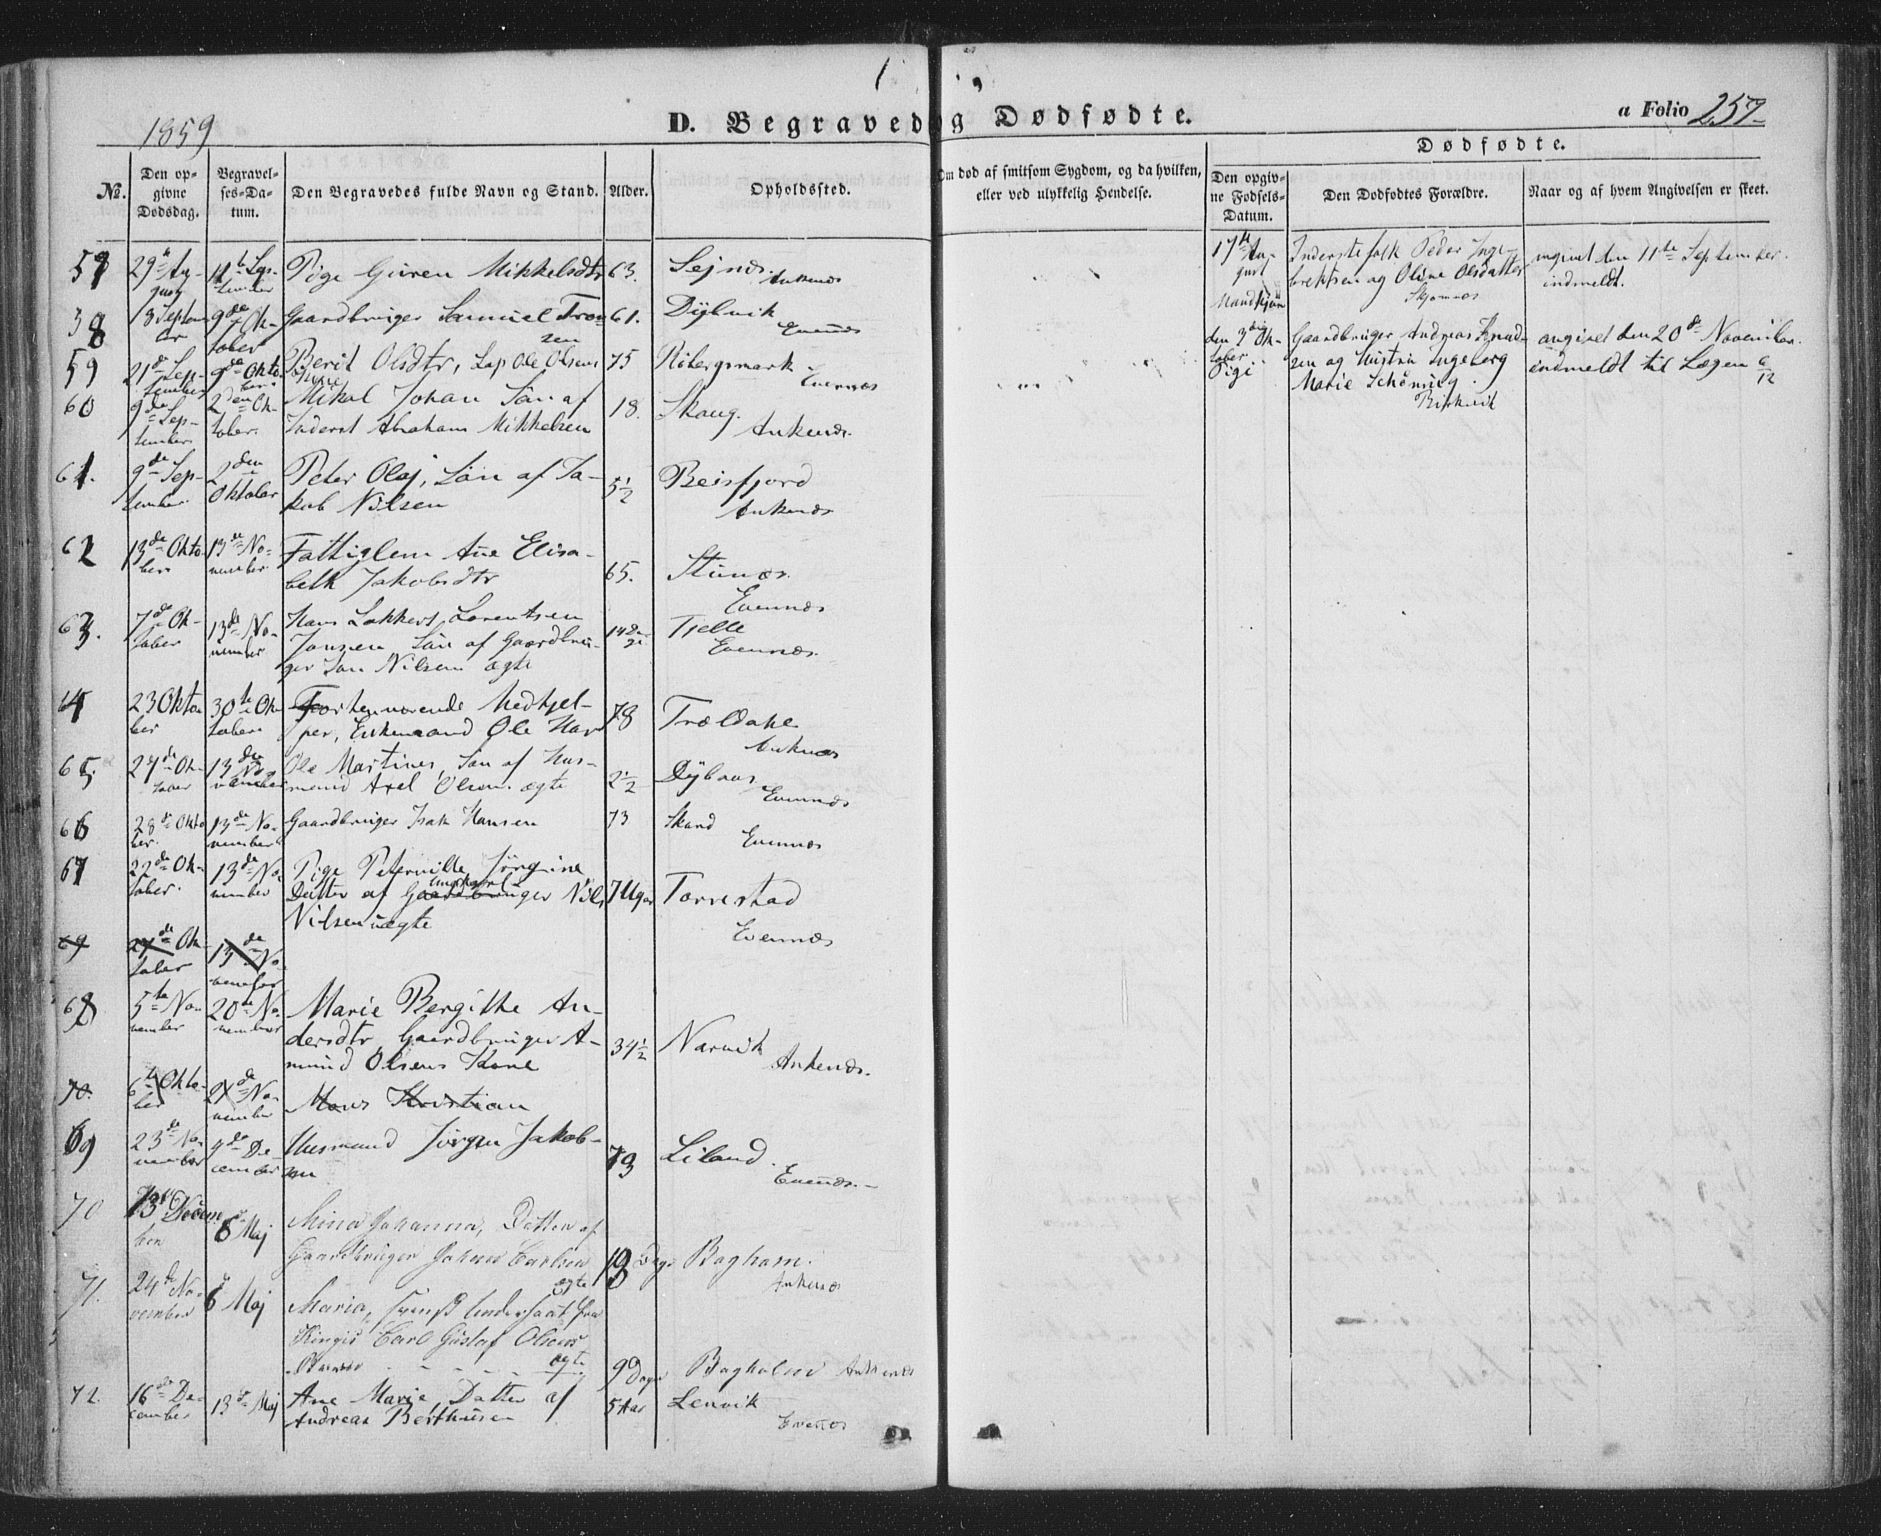 1859
D. Begravede og Dødfødte.
a Folio 257
No.
Den opgivne Dødsdag.
Begravelses-Datum.
Den Begravedes fulde Navn og Stand.
Alder.
Opholdssted.
Om død af smitsom Sygdom, og da hvilken, eller ved ulykkelig Hendelse.
Dødfødte.
Den opgivne Fødsels-Datum.
Den Dødfødtes Forældre.
Naar og af hvem Angivelsen er skeet.
57 29de August 11te September Pige Guren Mikkelsdtr 63.
Ankenes
58 18 September 9de Oktober Gaardbruger Samuel Tronsen 61. Dybvik
Evennæs
59 21de September 9de Oktober Berit Olsdtr, Lap Ole Olsens 75 Røbergsmark
Evennæs
60 9de September 2den Oktober Mikal Johan Søn af 18. Skaug.
Inderst Abraham Mikkelsen Ankenæs.
61. 9de September 2den Oktober Peter Olaj, Søn af Ja- 5½ Beisfjord
kob Nilsen Ankenæs
62 13de Oktober 13de November Fattiglem Ane Elisa-
beth Jakobsdtr 65. Stunæs.
Evennæs
63. 7de Oktober 13de November Hans Lorentsen
Jansen Søn af Gaardbru- 14 Dage Tjelle
ger Jan Nilsen ægte Evennæs.
64 23 Oktober 30te Oktober Forhenværende Medhjel-
per, Enkemand Ole Hans 78 Trældahl
Ankenæs
65. 27de Oktober 13de November Ole Martines, Søn af Hus-
mand Axel Olsen. ægte 2½
Evennæs
66 28de Oktober 13de November Gaardbruger Isak Hansen 73
Evennæs
67 22de Oktober 13de November Pige Peterville Jørgine
Datter af Gaardbruger Nils 7 Uger Torrestad
Nilsen uægte
Evennæs
69 27de Oktober 13de November
68 5te November 20de November Marie Bergithe An-
dersdtr Gaardbruger A-
mund Olsens Kone 34½ Narvik
Ankenæs.
70. 6te Oktober November Mons Kristian
69 23de November 4de December Husmand Jørgen Jakob-
sen 73 Liland.
Evennæs.
70 December 6 Maj Mina Johanna, Datter af
Gaardbruger Johan Carlsen Dage
ægte Ankenæs
71. 24de November 6 Maj Maria, svensk Undersaat fra
Kingis Carl Gustaf Olsens
ægte 9 Dage Bagholm Ankenæs
72. 16de December 13de Maj Ane Marie, Datter af 5 Aar Lenvik
Andreas Berthusen Evenæs
17de August
Mandkjøn
Inderstefolk Peder Inge-
brektsen og Oline Olsdatter
Skjomnæs
angivet den 11te September.
indmeldt.
den 3die Oktober
Pige
Gaardbruger Andreas Knud-
sen og Hustru Ingeborg
Marie Schöning.
angivet den 20de November.
indmeldt til Lægen 6/12